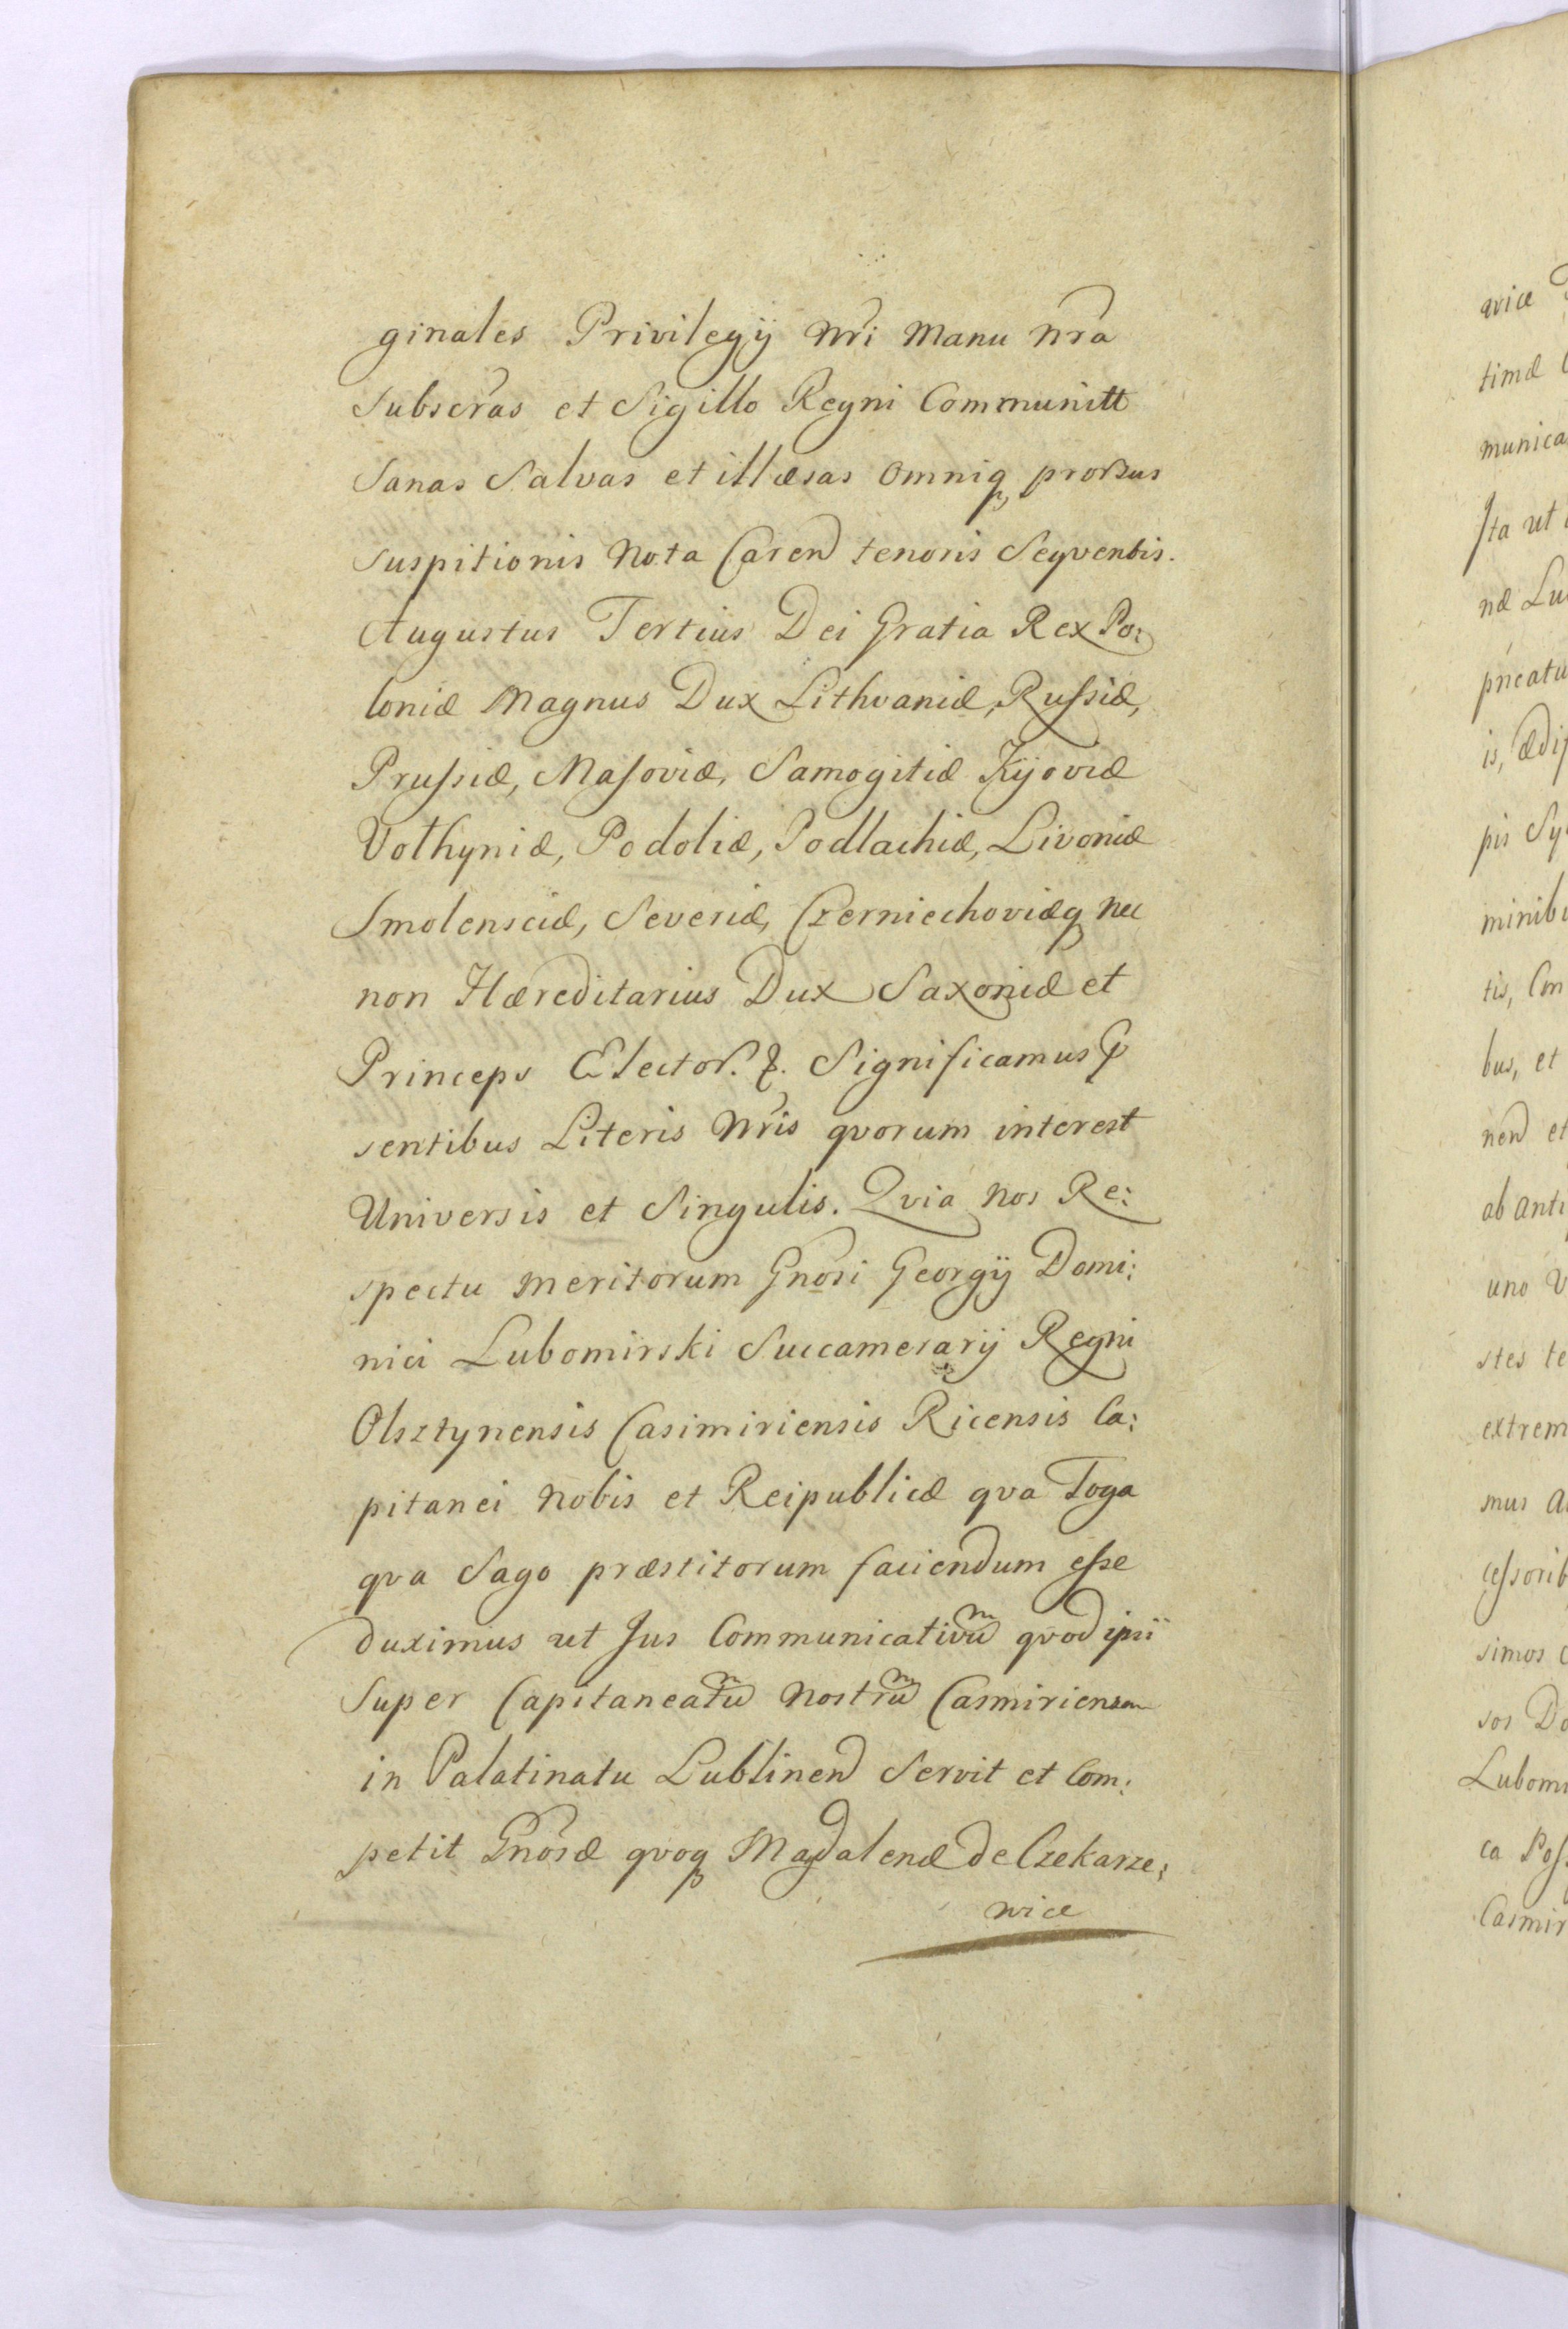 ginales Privilegÿ Nrĩ Manu Nrã
Subscrãs et Sigillo Regni Communitt
Sanas Salvas et illæsas omniq, prorsus
suspitionis Nota Caren tenoris Seqventis.
Augustus Tertius Dei Gratia Rex Po:
loniæ Magnus Dux Lithvaniæ, Russiæ,
Prussiæ, Masoviæ, Samogitiæ Kijoviæ
Volhyniæ, Podoliæ, Podlachiæ, Livoniæ
Smolensciæ, Severiæ, Czerniechoviæq nec
non Hæreditarius Dux Saxoniæ et
Princeps Elector. &. Significamus P
sentibus Literis Nrĩs qvorum interest
Universis et Singulis. Qvia Nos Re:
spectu meritorum Gnõsi Georgÿ Domi:
nici Lubomirski Succamerarÿ Regni
Olsztynensis Casimiriensis Ricensis Ca:
pitanei Nobis et Reipublicæ qva Toga
qva Sago præstitorum faciendum esse
duximus ut Jus Communicativũ qvod ipsi
Super Capitaneatũ Nostrũ Casmiriensem
in Palatinatu Lublinen Servit et Com:
petit Gnõsæ qvoq Magdalenæ de Czekarze:
wice
avice
timæ
munica
Ita ut
næ Lu
pncatu
is, ædif
pis Sy
minibu
tis, Cm
bus, et
nen et
ab anti
uno V
stes te
extrem
mus a
cessorib
simos c
sos Do
Lubomi
ca Poss
Casmir